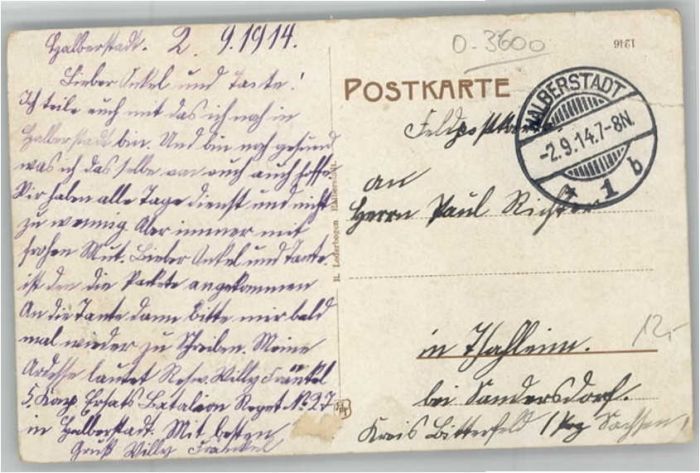 Halberstadt. 2. 9. 1914.
Lieber Onkel und Tante!
Ich teile euch mit das ich noch in
Halberstadt bin. Und bin noch gesund
was ich das selbe von euch auch hoffe.
Wir haben alle Tage dienst und nicht
zu wennig Aber immer mit
frohen Mut. Lieber Onkel und Tante
ist den die Pakete angekommen
An die Tante dann bitte mir bald
mal wieder zu Schreiben. Meine
Adresse lautet Reserv. Willy Fränkel
5. Komp. Ersats Batalion Regmt No 27
in Halberstadt. Mit besten
Gruß Willy Fraenkel
O-3600
1246
POSTKARTE
HALBERSTADT
-2.9.14.7-8N.
* 1 b
Feldpostkarte
an
Herrn Paul Richter
R. Lederbogen
in Thalheim.
12,-
bei Sandersdorf.
Kreis Bitterfeld / Prz Sachsen